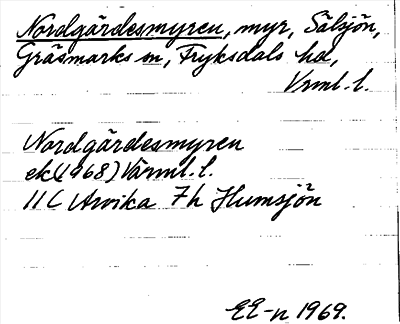 Nordgärdesmyren, myr, Sälsjön,
Gräsmarks sn, Fryksdals hd,
Vrml. l.
Nordgärdesmyren
ek (1968) Värml. l.
11C Arvika 7h Humsjön
EE-n 1969.